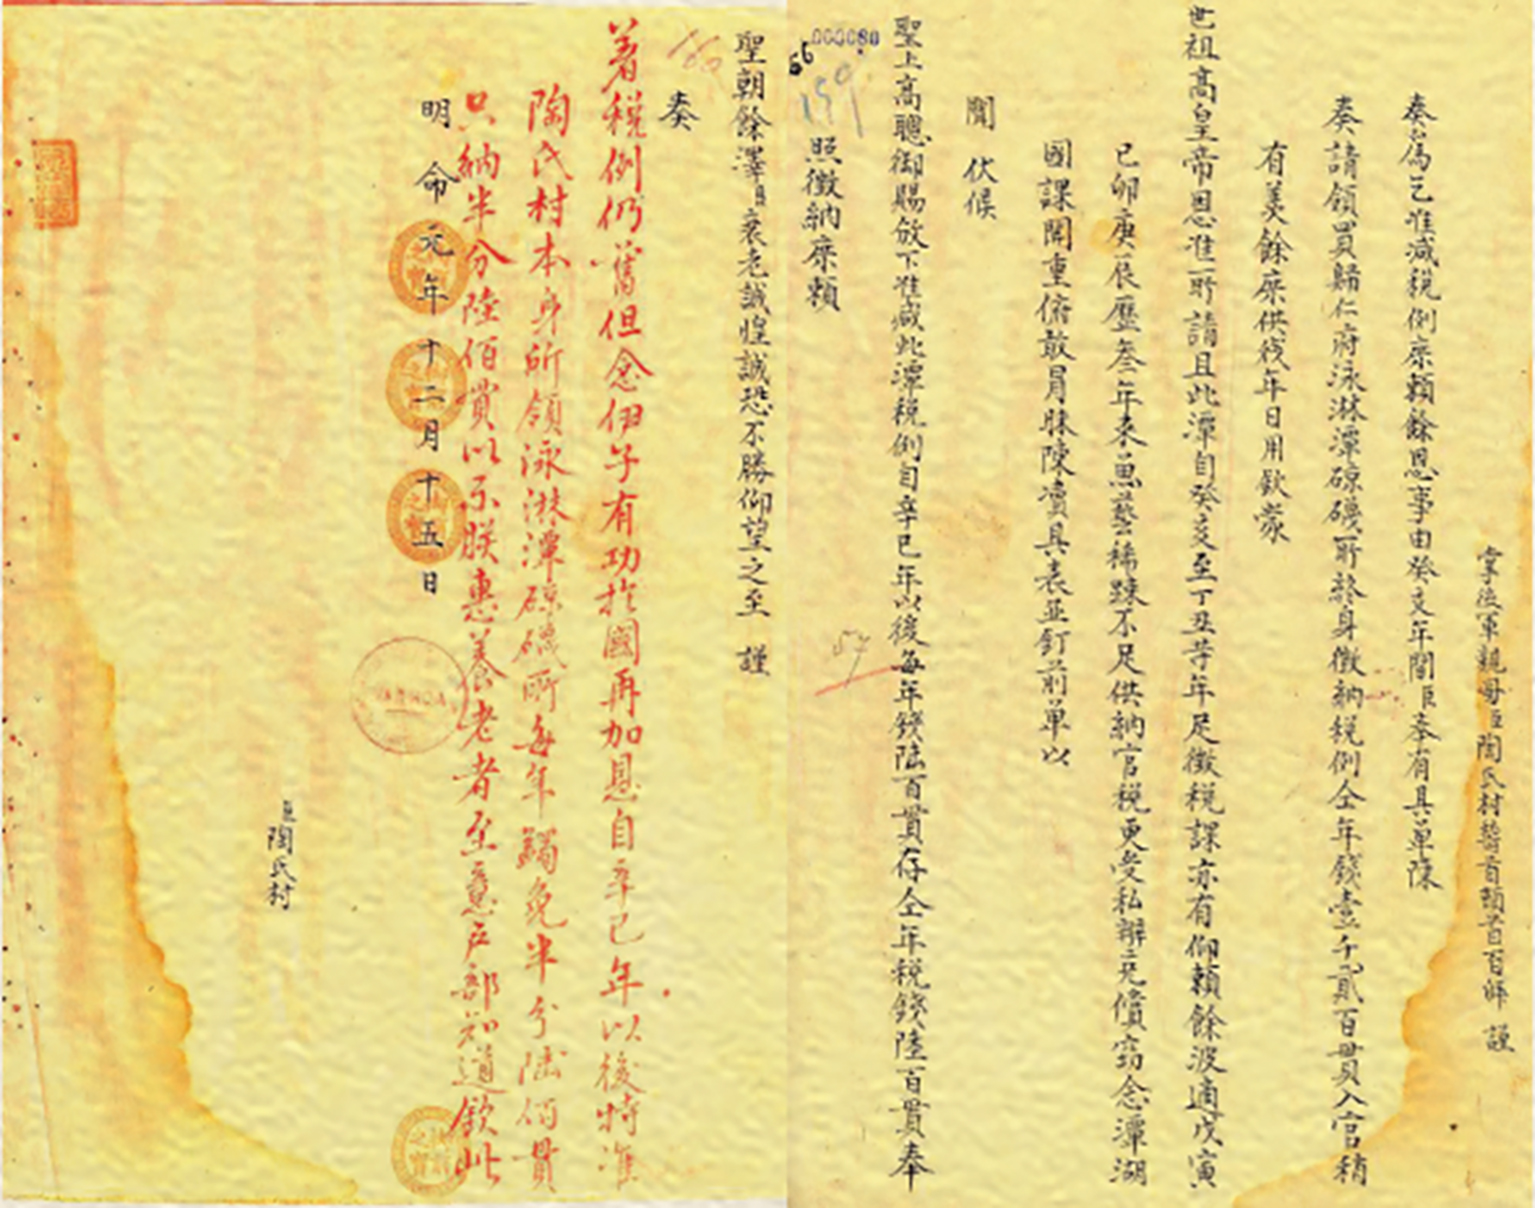 掌後軍親母臣陶氏村稽首頓首百拜 謹
奏爲乞准減稅例庶賴餘恩事由癸亥年間臣奉有具單陳
奏請領買歸仁府泳淋潭碌磯所終身徵納稅例仝年錢壹千貳百貫入官稍
有羨餘庶供殘年日用欽蒙
世祖高皇帝恩准所請且此潭自癸亥至丁丑等年足徵稅課亦有仰賴餘波適戊寅
己卯庚辰歷叁年來魚藝稀踈不足供納官稅更受私辦充償窃念潭湖
國課関重俯敢冒昧陳瀆具表並釘前單以
聞 伏候
聖上高聰御賜放下准減此潭稅例自辛巳年以後每年錢陸百貫存仝年稅錢陸百貫奉
000080
66
159
照徵納庶賴
57
聖朝餘澤臣衰老誠惶誠恐不勝仰望之至 謹
奏
160
著稅例仍舊但念伊子有功於國再加恩自辛巳年以後特准
陶氏村本身所領泳淋潭碌磯所每年蠲免半分陸佰貫
只納半分陸佰貫以示朕惠養老者至意戶部知道欽此
明命元年十二月十五日
臣陶氏村